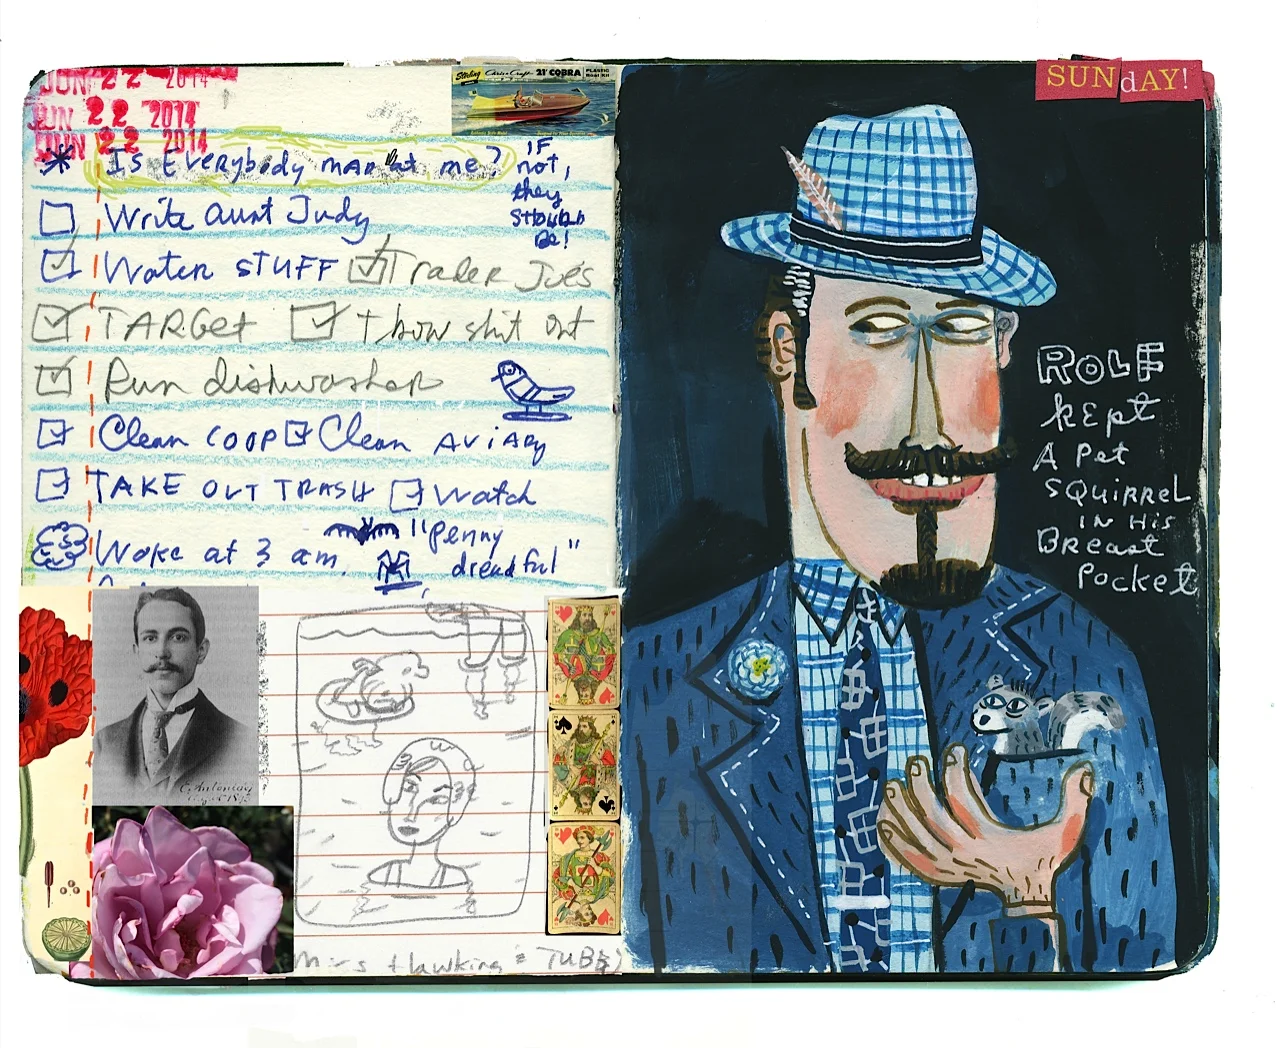 JUN 22 2014
JUN 22 2014
JUN 22 2014
Sterling Chris-Craft 21' COBRA PLASTIC
SUNdAY!
Is Everybody mad at me?
IF
not,
they
SHOULD
BE!
Write aunt Judy
Water STUFF Trader Joe's
TARGet Thow shit out
Run dishwasher
Clean coop Clean AviARy
TAKE OUT TRASH Watch
"Penny
dreadful"
Woke at 3 am.
Mrs Hawking's TUBB
ROLF
kEpt
A Pet
SQUIRREL
IN His
BReast
Pocket